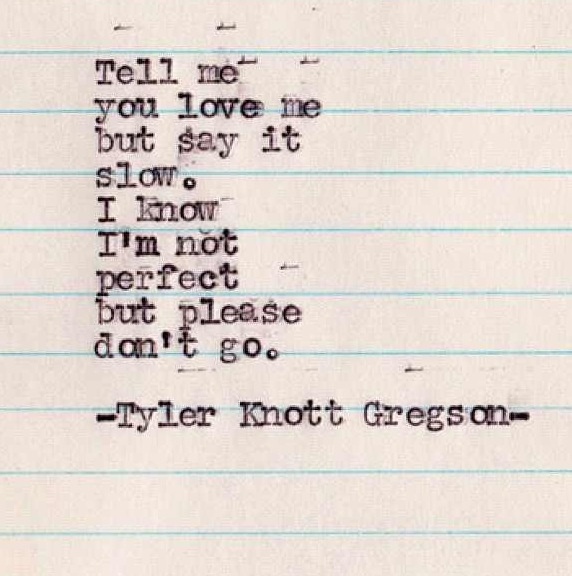 Tell me
you love me
but say it
slow.
I know
I'm not
perfect
but please
don't go.
-Tyler Knott Gregson-